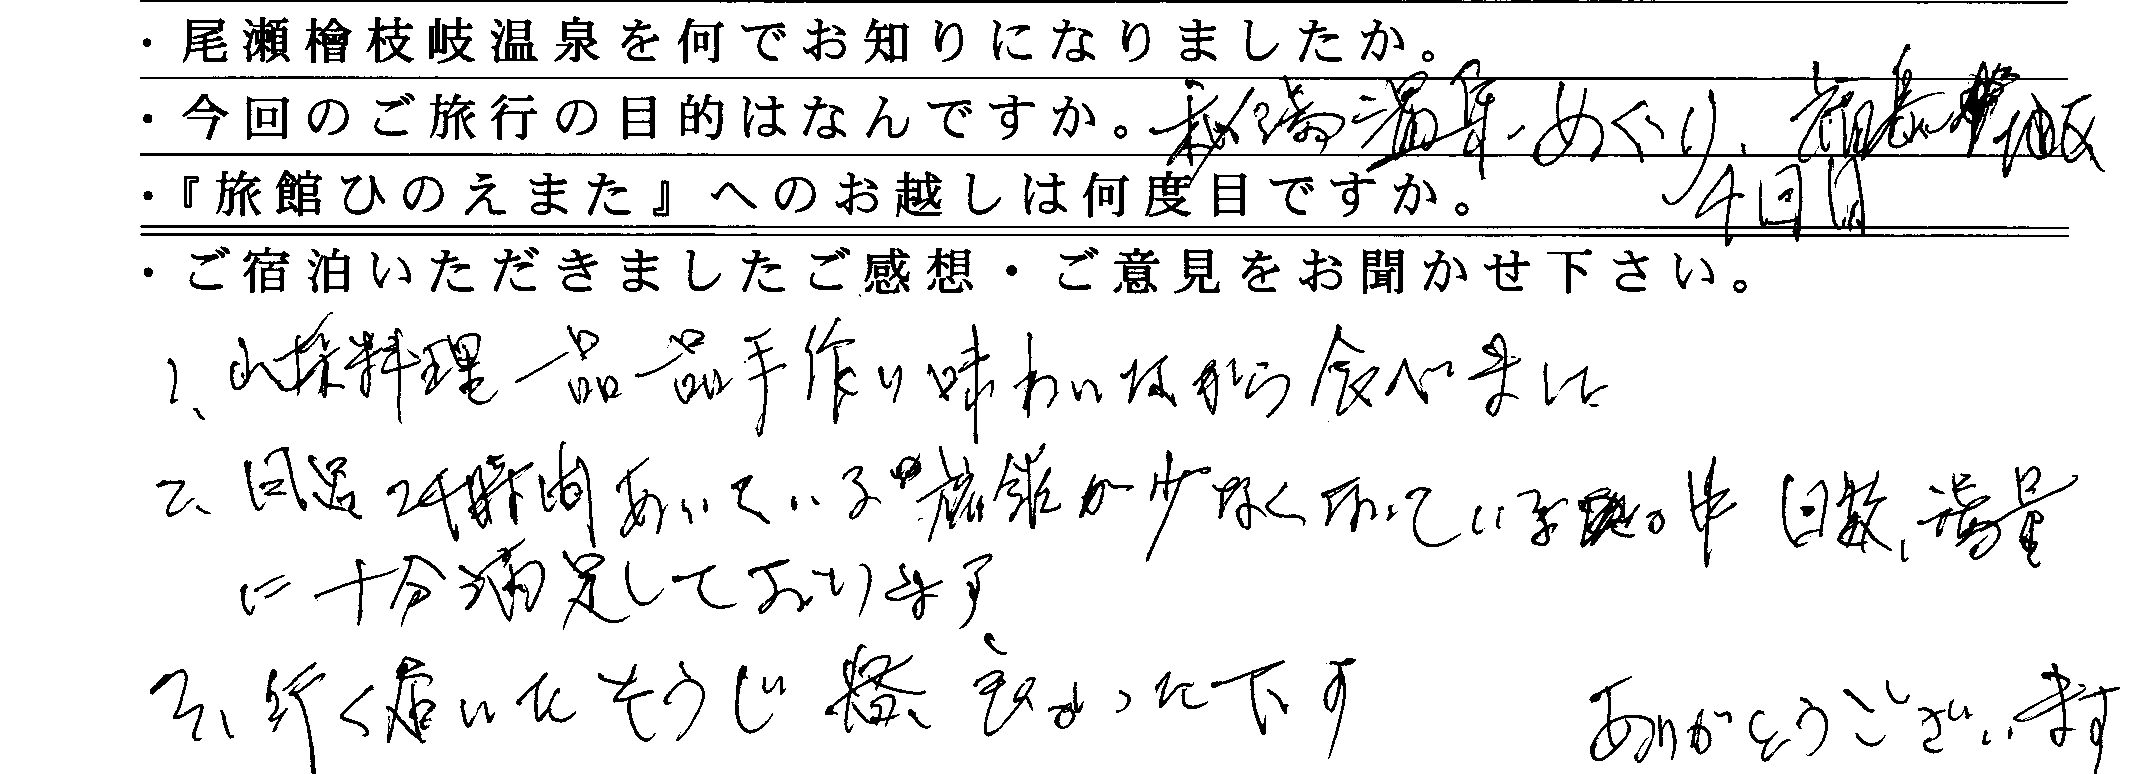 ・尾瀬檜枝岐温泉を何でお知りになりましたか。
・今回のご旅行の目的はなんですか。秘湯温泉めぐり、
・『旅館ひのえまた』へのお越しは何度目ですか。 4回目
・ご宿泊いただきましたご感想・ご意見をお聞かせ下さい。
1、山採料理一品一品手作り味わいながら食べました
2、回呂24時間あいている旅館が少なくなっている中 回数、湯量
に十分満足しております
3、行く届いたそうじ 良かったです ありがとうございます